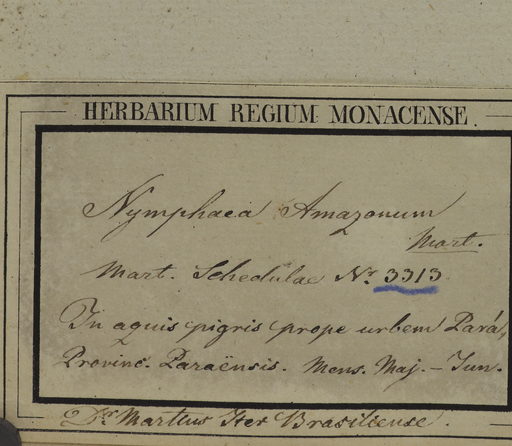 HERBARIUM REGIUM MONACENSE.
Nymphaea Amazonum
Mart.
Mart. Schedulae Nr. 3313
In aquis pigris prope urbem Pará,
Provinc. Paraënsis. Mens. Maj. - Jun.
Dr. Martius Iter Brasiliense.